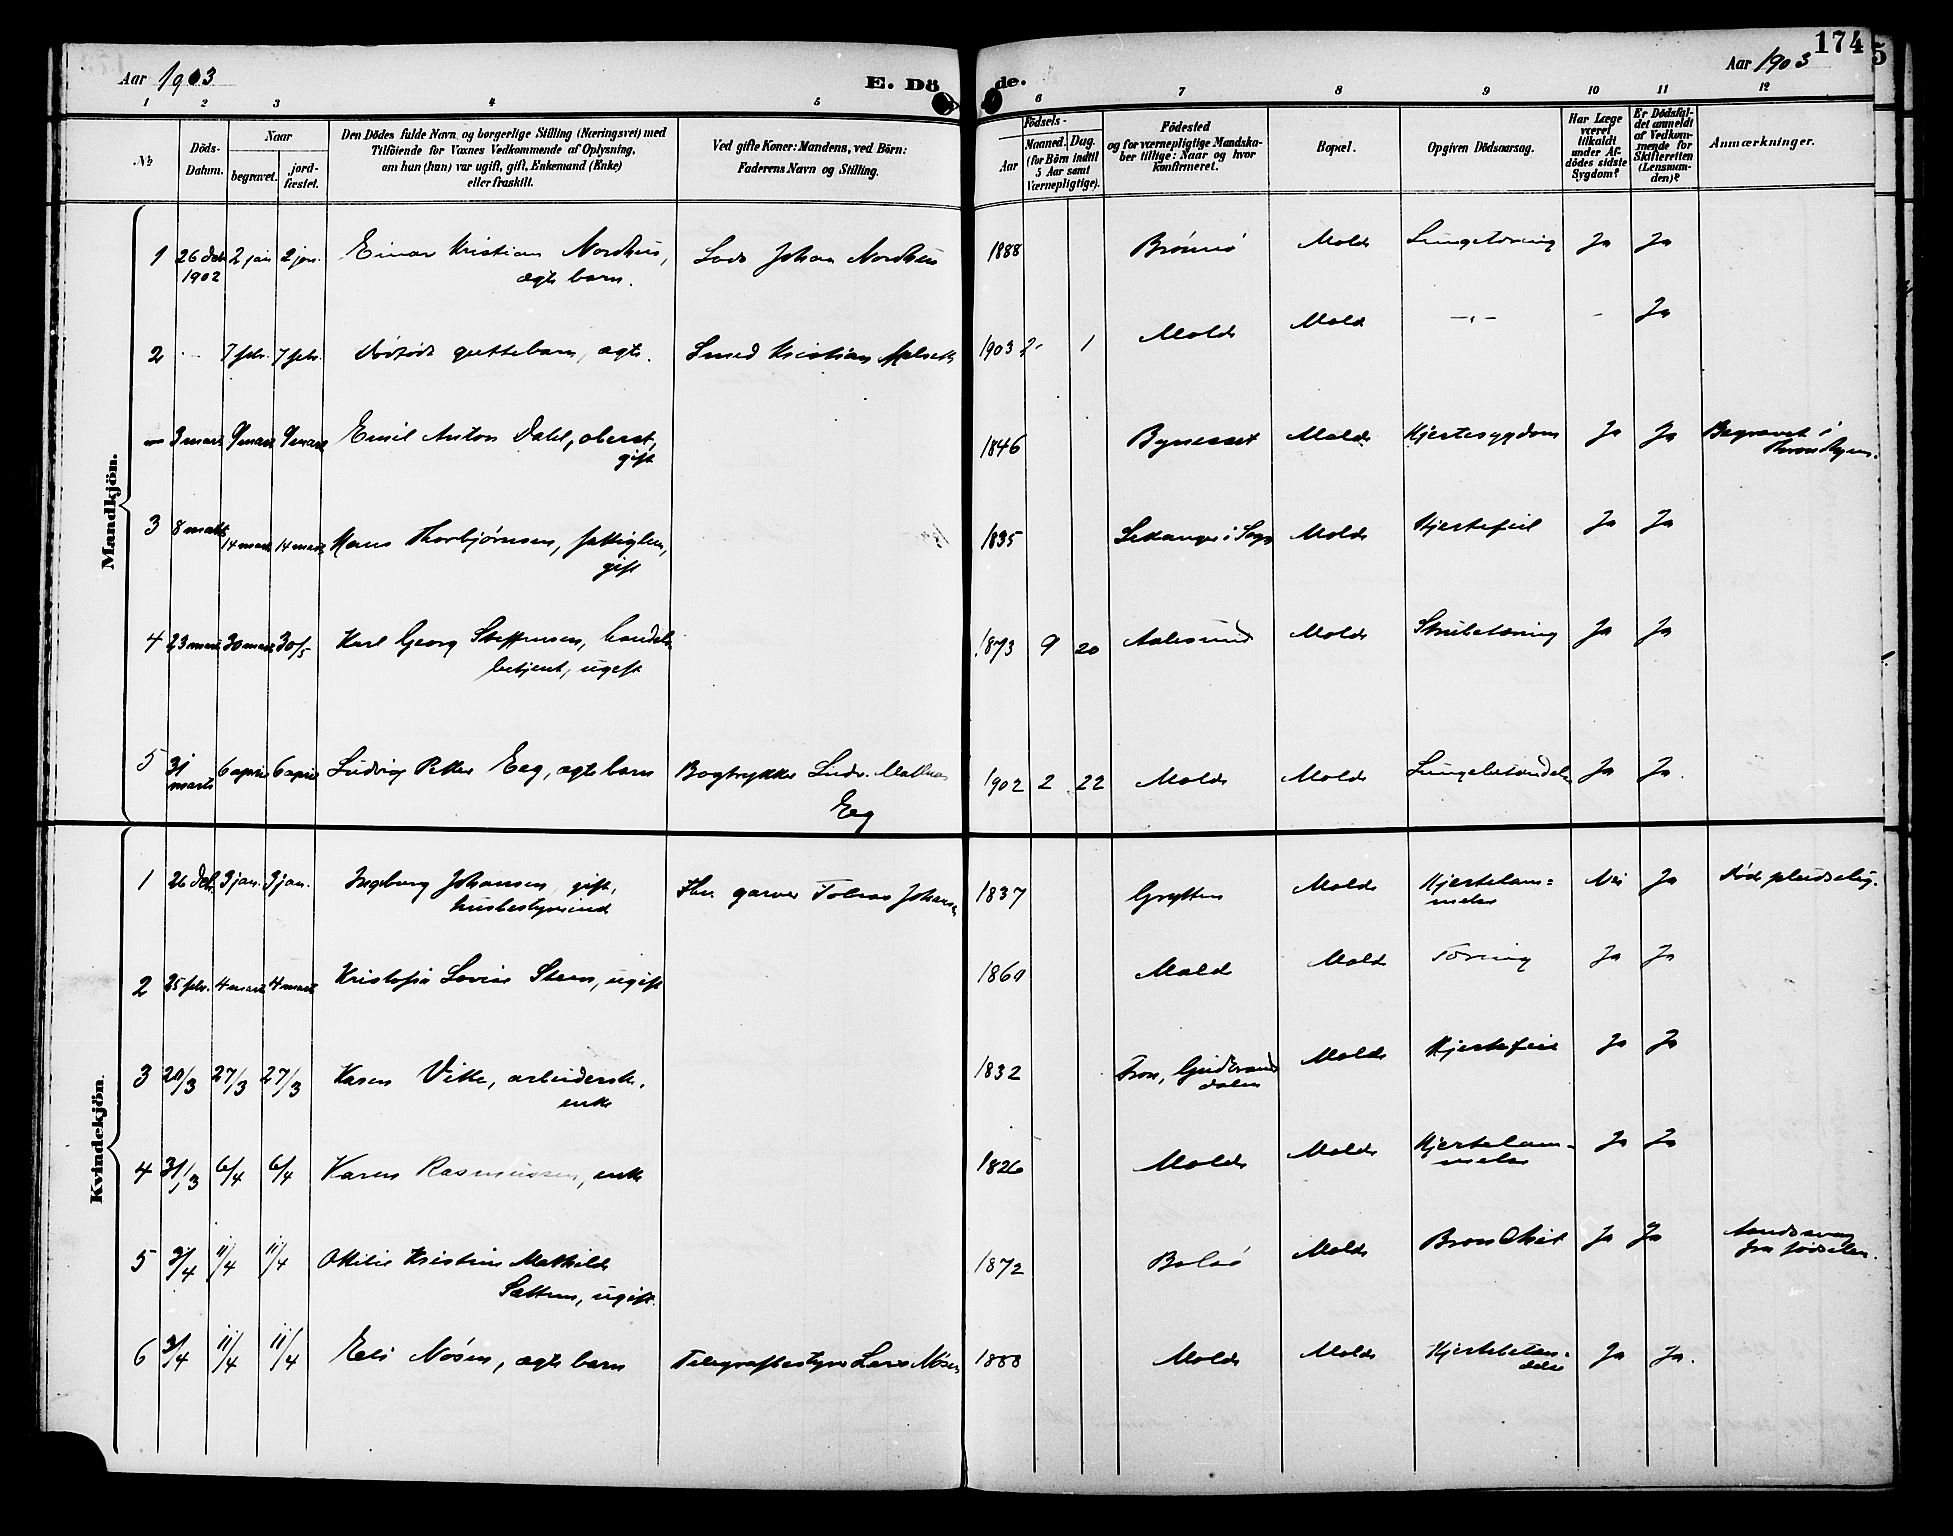 174
5
Aar 1903
E. Dö de.
Aar 1903
1 2 3 4 5 6 7 8 9 10 11 12
№
Döds-Datum.
Naar
begravet.
jord-fæstet.
Den Dödes fulde Navn og borgerlige Stilling (Næringsvei) med
Tilföiende for Voxnes Vedkommende af Oplysning,
om han (hun) var ugift, gift, Enkemand (Enke)
eller fraskilt.
Ved gifte Koner: Mandens, ved Börn:
Faderens Navn og Stilling.
Födsels-
Aar
Maaned. Dag.
(for Börn indtil
5 Aar samt
Værnepligtige).
Födested
og for værnepligtige Mandska-
ber tillige: Naar og hvor
konfirmeret.
Bopæl.
Opgiven Dödsaarsag.
Har Læge
været
tilkaldt
under Af-
dödes sidste
Sygdom?
Er Dödsfal-
det anmeldt
af Vedkom-
mende for
Skifteretten
(Lensman-
den)?
Anmærkninger.
Mandkjön.
1 26 dek 2 jan 2 jan. Einar Kristian Nordhus, Lods Johan Nordhus 1888 Brönnö Molde Lungetæring Ja Ja
1902 ægte barn.
2 - 7 febr. 7 febr. Dödfödt guttebarn, ægte. Smed Kristian 1903 2 1 Molde Molde -"- - Ja
- 3 marts 9 marts 9 marts Emil Anton Dahl, oberst, 1846 Bynesset Molde Hjertesygdom Ja Ja Begravet i
gift Throndhjem.
3 8 marts 14 marts 14 marts Hans Thorbjørnsen, fattiglem, 1835 Lekanger i Sogn Molde Hjertefeil Ja Ja
gift
4 23 marts 30 marts 30/5 Karl Georg Steffensen, handels 1873 9 20 Aalesund Molde Strubetæring Ja Ja
betjent, ugift
5 31 marts 6 april 6 april Ludvig Petter Eeg, ægte barn Bogtrykker Ludv. Mathias 1902 2 22 Molde Molde Lungebetændelse Ja Ja.
Eeg
Kvindekjön.
1 26 dek. 3 jan. 3 jan. Ingeborg Johansen, gift, Thv. garver Tobias Johansen 1837 Grytten Molde Hjertelam= Nei Ja Död pludselig.
husbestyrerinde melse
2 25 febr. 4 marts 4 marts Kristofa Lovise Steen, ugift 1860 Molde Molde Tæring Ja Ja
3 20/3 27/3 27/3 Karen Vike, arbeiderske, 1832 Fron, Gudbrands Molde Hjertefeil Ja Ja
enke dalen
4 31/3 6/4 6/4 Karen Rasmussen, enke 1826 Molde Molde Hjertelam= Ja Ja
melse
5 3/4 11/4 11/4 Ottilie Kristine Mathilde 1872 Bolsö Molde Bronchit Ja Ja Aandssvag
Sættem, ugift. fra födselen.
6 3/4 11/4 11/4 Eli Mösen, ægte barn Telegrafbestyrer Lars Mösen 1888 Molde Molde Hjertebetæn= Ja Ja.
delse